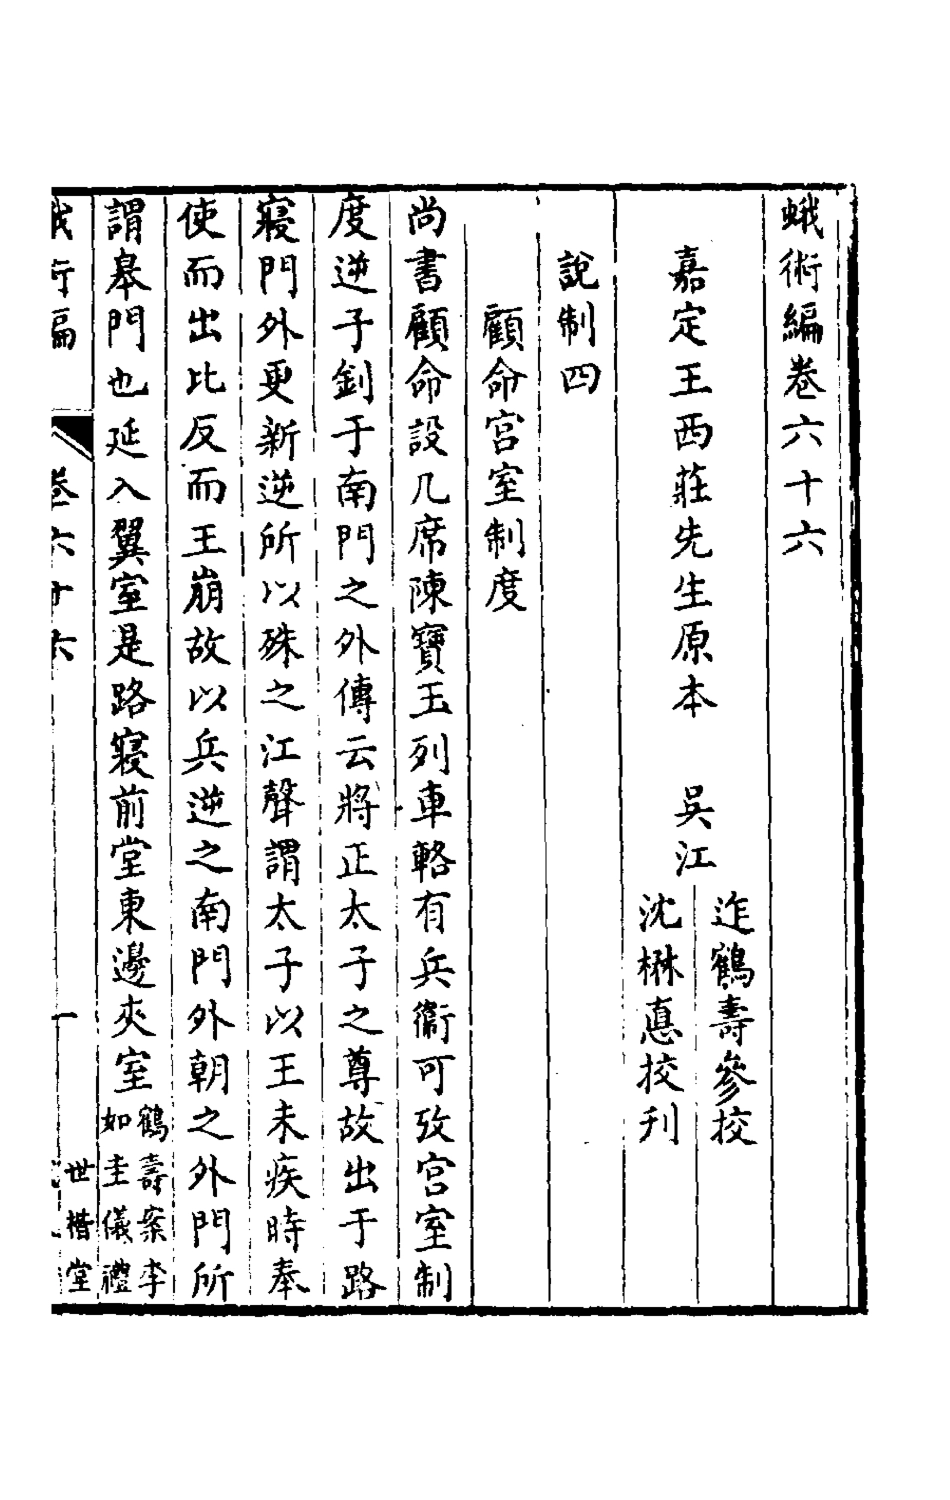 蛾術編卷六十六
嘉定王西莊先生原本　吳江
迮鶴壽參挍
沈楙悳挍刊
說制四
顧命宮室制度
尚書顧命設几席陳寶玉列車輅有兵衞可攷宮室制
度逆子釗于南門之外傳云將正太子之尊故出于路
寢門外更新逆所以殊之江聲謂太子以王未疾時奉
使而出比反而王崩故以兵逆之南門外朝之外門所
謂皋門也延入翼室是路寢前堂東邊夾室
鶴壽案李
如圭儀禮
蛾術編
卷六十六
一
世楷堂